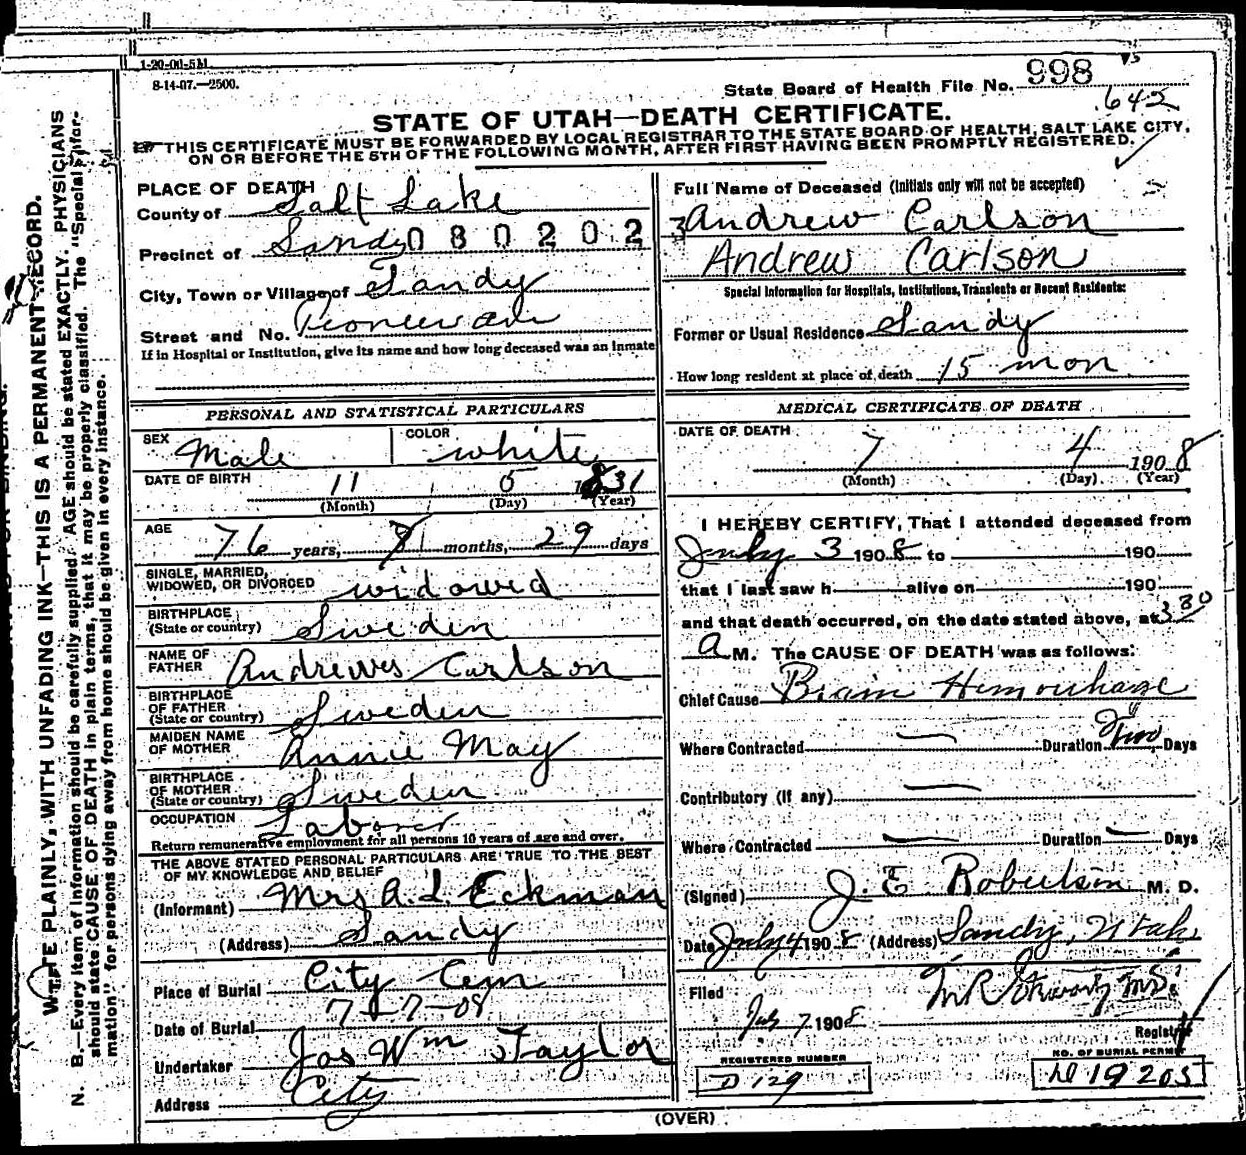 1-20-06-5M
8-14-07.—2500.
State Board of Health File No. 998
642
STATE OF UTAH—DEATH CERTIFICATE.
THIS CERTIFICATE MUST BE FORWARDED BY LOCAL REGISTRAR TO THE STATE BOARD OF HEALTH, SALT LAKE CITY,
ON OR BEFORE THE 5TH OF THE FOLLOWING MONTH, AFTER FIRST HAVING BEEN PROMPTLY REGISTERED.
PLACE OF DEATH
County of Salt Lake
Precinct of Sandy 080202
City, Town or Village of Sandy
Street and No. Pioneer ave
If in Hospital or Institution, give its name and how long deceased was an inmate
Full Name of Deceased (Initials only will not be accepted)
Andrew Carlson
Andrew Carlson
Special Information for Hospitals, Institutions, Transients or Recent Residents:
Former or Usual Residence Sandy
How long resident at place of death 15 mon
PERSONAL AND STATISTICAL PARTICULARS
SEX Male COLOR white
DATE OF BIRTH 11 5 1831
(Month) (Day) (Year)
AGE 76 years, months, 29 days
SINGLE, MARRIED,
WIDOWED, OR DIVORCED widowed
BIRTHPLACE
(State or country) Sweden
NAME OF
FATHER Andrews Carlson
BIRTHPLACE
OF FATHER
(State or country) Sweden
MAIDEN NAME
OF MOTHER Annie May
BIRTHPLACE
OF MOTHER
(State or country) Sweden
OCCUPATION Laborer
Return remunerative employment for all persons 10 years of age and over.
THE ABOVE STATED PERSONAL PARTICULARS ARE TRUE TO THE BEST
OF MY KNOWLEDGE AND BELIEF
(Informant) Mrs A. L Eckman
(Address) Sandy
Place of Burial City Cem
Date of Burial 7-7-08
Undertaker Jos Wm Taylor
Address City
MEDICAL CERTIFICATE OF DEATH
DATE OF DEATH
7 4 1908
(Month) (Day) (Year)
I HEREBY CERTIFY, That I attended deceased from
July 3 1908 to 190
that I last saw h alive on 190
and that death occurred, on the date stated above, at 3 30
A M. The CAUSE OF DEATH was as follows:
Chief Cause Brain Hemorrhage
Where Contracted — Duration Two Days
Contributory (if any) —
Where Contracted — Duration — Days
(Signed) J. E Robertson M. D.
Date July 4 1908 (Address) Sandy, Utah
Filed
July 7 1908
Registrar
REGISTERED NUMBER
D 129
NO. OF BURIAL PERMIT
D 19205
(OVER)
WRITE PLAINLY, WITH UNFADING INK—THIS IS A PERMANENT RECORD.
N. B.—Every item of information should be carefully supplied. AGE should be stated EXACTLY. PHYSICIANS
should state CAUSE OF DEATH in plain terms, that it may be properly classified. The "Special Infor-
mation" for persons dying away from home should be given in every instance.